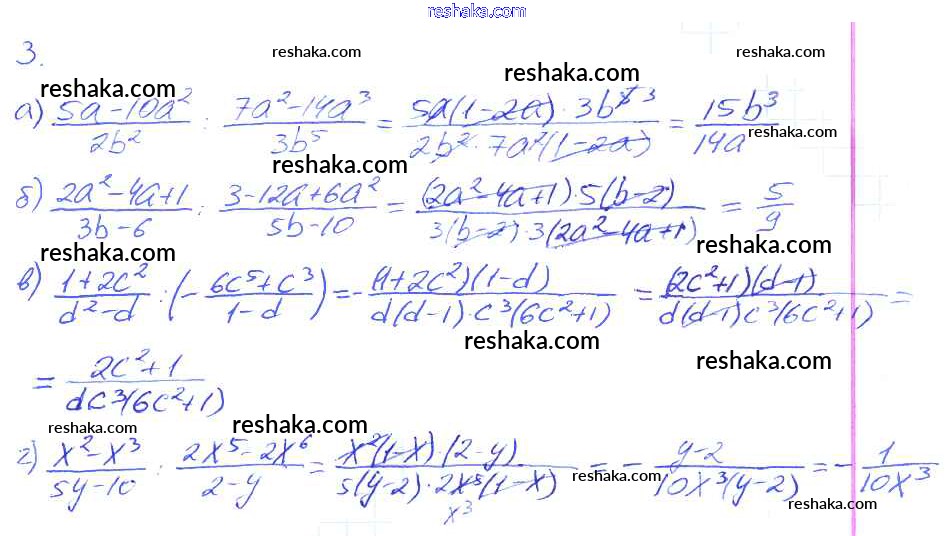 reshaka.com
3.
reshaka.com reshaka.com
reshaka.com reshaka.com
а) (5a-10a²)/(2b²) : (7a²-14a³)/(3b⁵) = (5a(1-2a)·3b⁵ ³)/(2b²·7a²(1-2a)) = 15b³/14a
reshaka.com
reshaka.com
б) (2a²-4a+1)/(3b-6) : (3-12a+6a²)/(5b-10) = ((2a²-4a+1)·5(b-2))/(3(b-2)·3(2a²-4a+1)) = 5/9
reshaka.com reshaka.com
в) (1+2c²)/(d²-d) : (-(6c⁵+c³)/(1-d)) = -((1+2c²)(1-d))/(d(d-1)·c³(6c²+1)) = ((2c²+1)(d-1))/(d(d-1)c³(6c²+1)) =
reshaka.com
= (2c²+1)/(dc³(6c²+1))
reshaka.com
reshaka.com reshaka.com
г) (x²-x³)/(5y-10) : (2x⁵-2x⁶)/(2-y) = (x²(1-x)·(2-y))/(5(y-2)·2x⁵(1-x)) = -(y-2)/(10x³(y-2)) = -1/(10x³)
x³
reshaka.com reshaka.com
reshaka.com reshaka.com